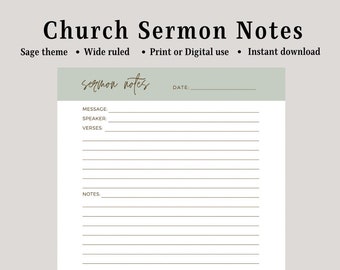 Church Sermon Notes
Sage theme • Wide ruled • Print or Digital use • Instant download
sermon notes DATE:
MESSAGE:
SPEAKER:
VERSES:
NOTES: